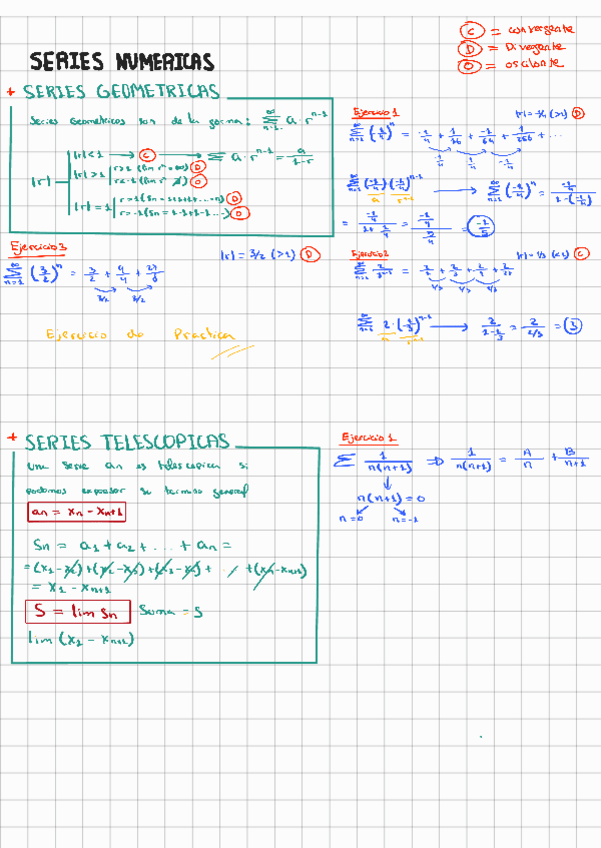 C = convergente
D = Divergente
O = oscilante
SERIES NUMERICAS
+ SERIES GEOMETRICAS
Series Geometricas son de la forma: ∞ Σ n=1 a · r^n-1
|r| < 1 → C → Σ a · r^n-1 = a/1-r
|r| > 1
r>1 (lim rⁿ = ∞) D
r<-1 (lim rⁿ ∄) O
|r|
|r| = 1
r=-1 (Sn = 1-1+1-1 - ...) O
Ejercicio 1
D
Σ (-1/4)ⁿ = -1/4 + 1/16 + -1/64 + 1/256 + ...
-1/4 -1/4 -1/4
a r^n-1
Ejercicio 3
|r| = 3/2 (>1) D
∞ Σ n=1 (3/2)ⁿ = 3/2 + 9/4 + 27/8
3/2 3/2
Ejercicio 2
|r| = 1/3 (<1) C
1/3 1/3 1/3
∞ Σ n=1 2·(1/3)^n-1 → 2/1-1/3 = 2/2/3 = 3
a r^n-1
Ejercicio de Practica
+ SERIES TELESCOPICAS
Una serie an es telescopica si
podemos expresar su termino general
an = xn - xn+1
Sn = a1 + a2 + ... + an =
= (x1 - x2) + (x2 - x3) + (x3 - x4) + . . + (xn - xn+1)
= x1 - xn+1
S = lim Sn Suma = S
lim (x1 - xn+1)
Ejercicio 1
Σ 1/n(n+1) ⇒ 1/n(n+1) = A/n + B/n+1
n(n+1) = 0
n=0 n=-1